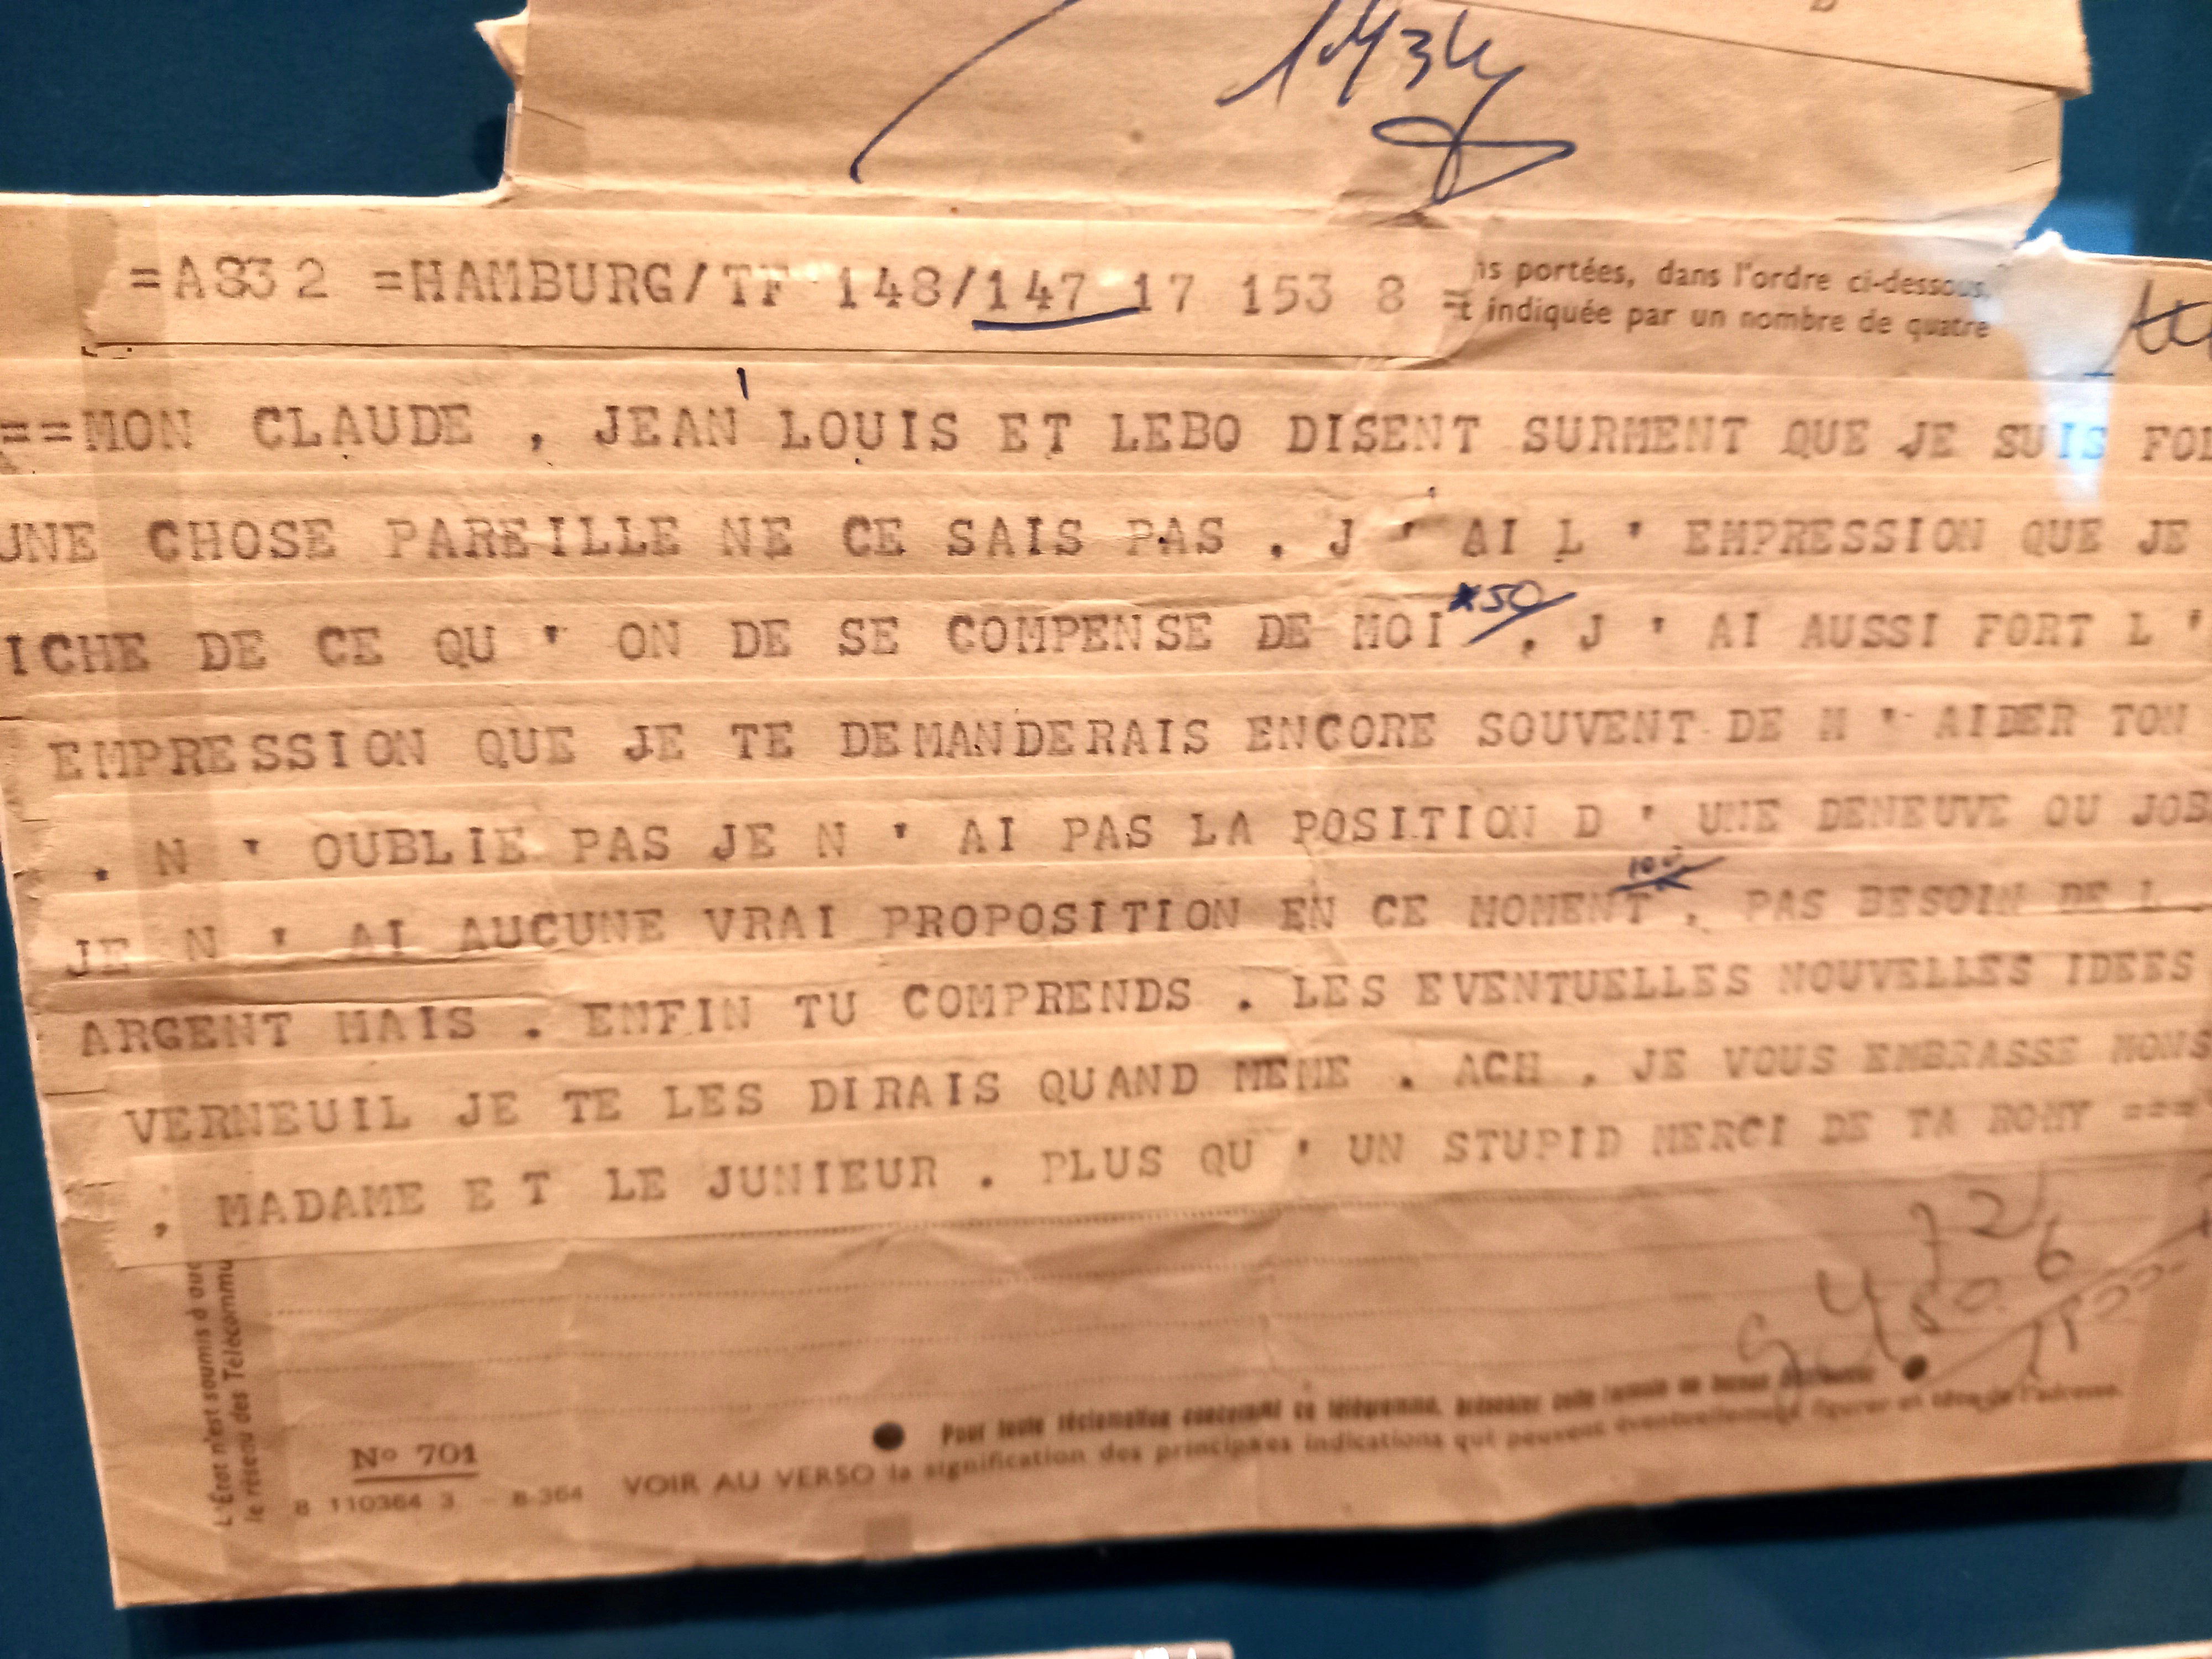 1434
=A832 =HAMBURG/TF 148/147 17 153 8 =
ns portées, dans l'ordre ci-dessous,
t indiquée par un nombre de quatre
==MON CLAUDE , JEAN LOUIS ET LEBO DISENT SURMENT QUE JE SUIS FOL
UNE CHOSE PAREILLE NE CE SAIS PAS . J ' AI L ' EMPRESSION QUE JE
ICHE DE CE QU ' ON DE SE COMPENSE DE MOI . J ' AI AUSSI FORT L '
*50
EMPRESSION QUE JE TE DEMANDERAIS ENCORE SOUVENT DE M ' AIDER TON
. N ' OUBLIE PAS JE N ' AI PAS LA POSITION D ' UNE DENEUVE OU JOB
100
JE N ' AI AUCUNE VRAI PROPOSITION EN CE MOMENT . PAS BESOIN DE L .
ARGENT MAIS . ENFIN TU COMPRENDS . LES EVENTUELLES NOUVELLES IDEES
VERNEUIL JE TE LES DIRAIS QUAND MEME . ACH . JE VOUS EMBRASSE MONS
. MADAME ET LE JUNIEUR . PLUS QU ' UN STUPID MERCI DE TA ROMY ===
L'État n'est soumis à auc
le réseau des Télécommu
726
Nº 701
8 110364 3 - 8-364
Pour toute réclamation concernant ce télégramme, présenter cette
VOIR AU VERSO la signification des principales indications qui peuvent éventuellement figurer en tête de l'adresse.